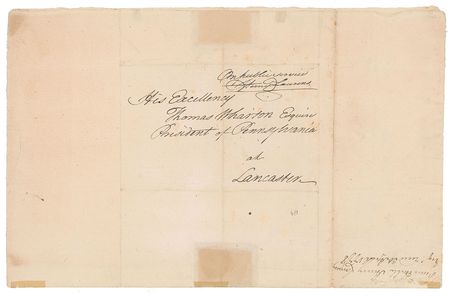 On public service
Henry Laurens
His Excellency
Thomas Wharton Esquire
President of Pennsylvania
at
Lancaster